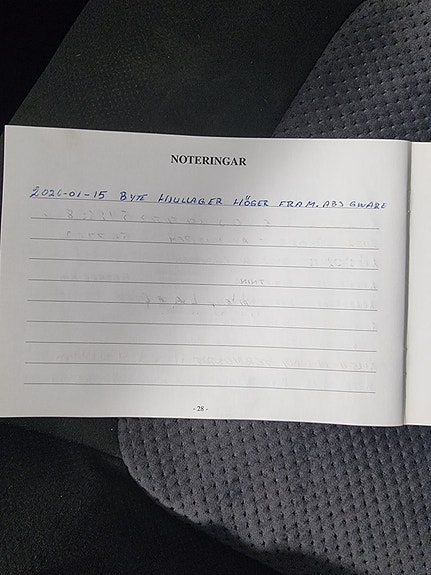 NOTERINGAR
2026-01-15 BYTE HJULLAGER HÖGER FRAM. ABS GIVARE
- 28 -